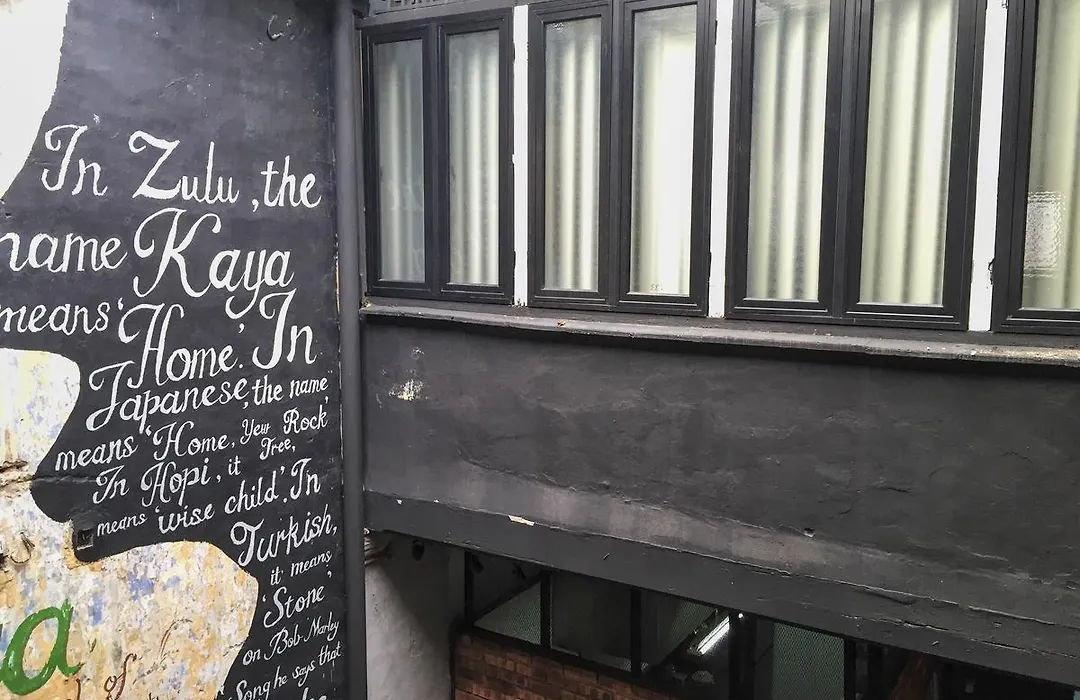 In Zulu, the
name Kaya
means 'Home'. In
Japanese, the name
means 'Home, Yew Rock'
Tree,
In Hopi, it
means 'wise child'. In
Turkish,
it means
'Stone'
on Bob Marley
Song he says that
a
of